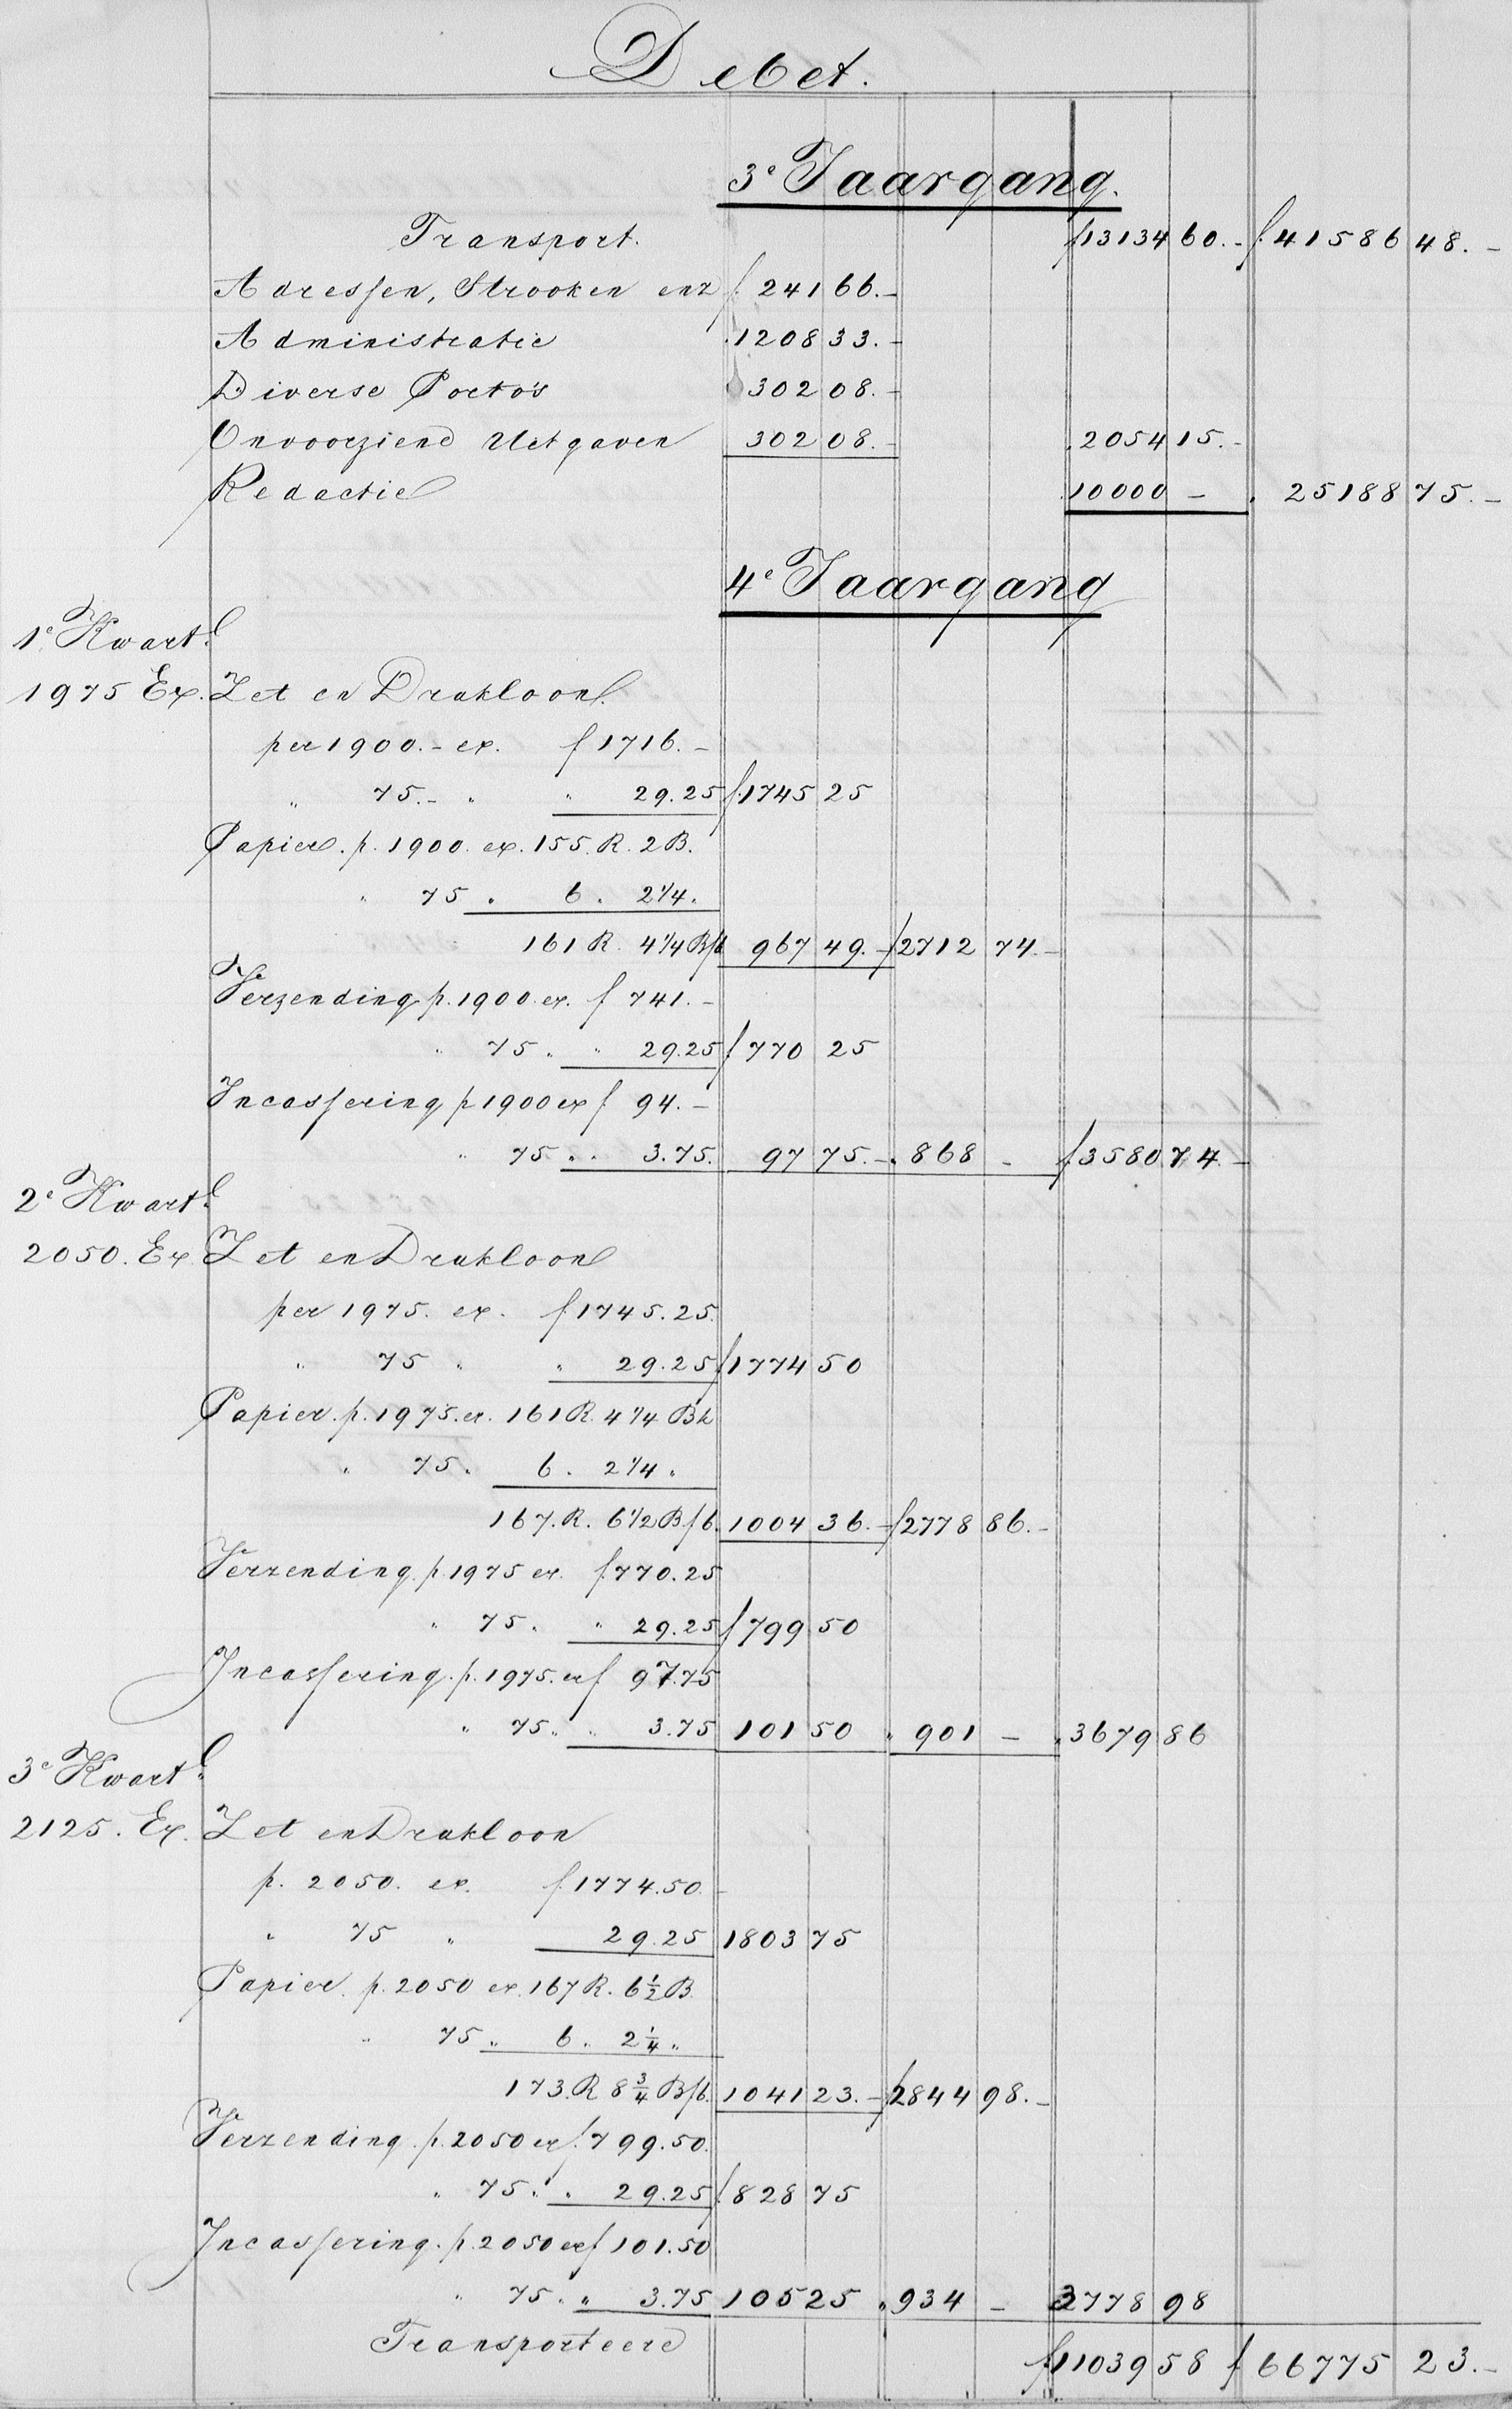 Debet.
3e Jaargang.
Transport. f 13134 60.- f. 41586 48.-
Adressen, Strooken enz f. 241 66.-
Administratie . 1208 33.-
Diverse Porto's 302 08.-
Onvoorziene Uitgaven 302 08.- . 2054 15.-
Redactie . 10000 - . 25188 75.-
4e Jaargang
1e Kwartl.
1975 Ex. Zet en Drukloon.
per 1900.- ex. f 1716.-
" 75.- " " 29.25 f. 1745 25
Papier. p. 1900. ex. 155. R. 2 B.
" 75 " 6 " 2 1/4 "
161 R. 4 1/4 B f 6 967 49.- f 2712 74.-
Verzending p. 1900. ex. f 741.-
" 75 " " 29.25 f. 770 25
Incasseering p 1900 ex f. 94.-
" 75 " " 3.75. 97 75.- " 868 - f. 3580 74.-
2e Kwartl.
2050. Ex Zet en Drukloon
per 1975. ex. f. 1745.25.
" 75 " " 29.25 f. 1774 50
Papier. p. 1975. ex. 161 R. 4 1/4 Bk
" 75 " 6 " 2 1/4 "
167. R. 6 1/2 B f 6. 1004 36.- f 2778 86.-
Verzending. p. 1975 ex. f. 770.25
" 75 " " 29.25 f 799 50
Incasseering. p. 1975. ex f. 97.75
" 75 " " 3.75 101 50 " 901 - " 3679 86
3e Kwartl.
2125. Ex. Zet en Drukloon
p. 2050. ex. f. 1774.50.
" 75 " 29.25 1803 75
Papier. p. 2050 ex. 167 R. 6 1/2 B.
" 75 " 6 " 2 1/4 "
173. R 8 3/4 B f 6. 1041 23.- f. 2844 98.-
Verzending. p. 2050 ex f. 799.50.
" 75 " " 29.25 f. 828 75
Incasseering. p. 2050 ex f 101.50
" 75 " " 3.75 105 25 " 934 - 3778 98
Transporteere f. 11039 58 f 66775 23.-